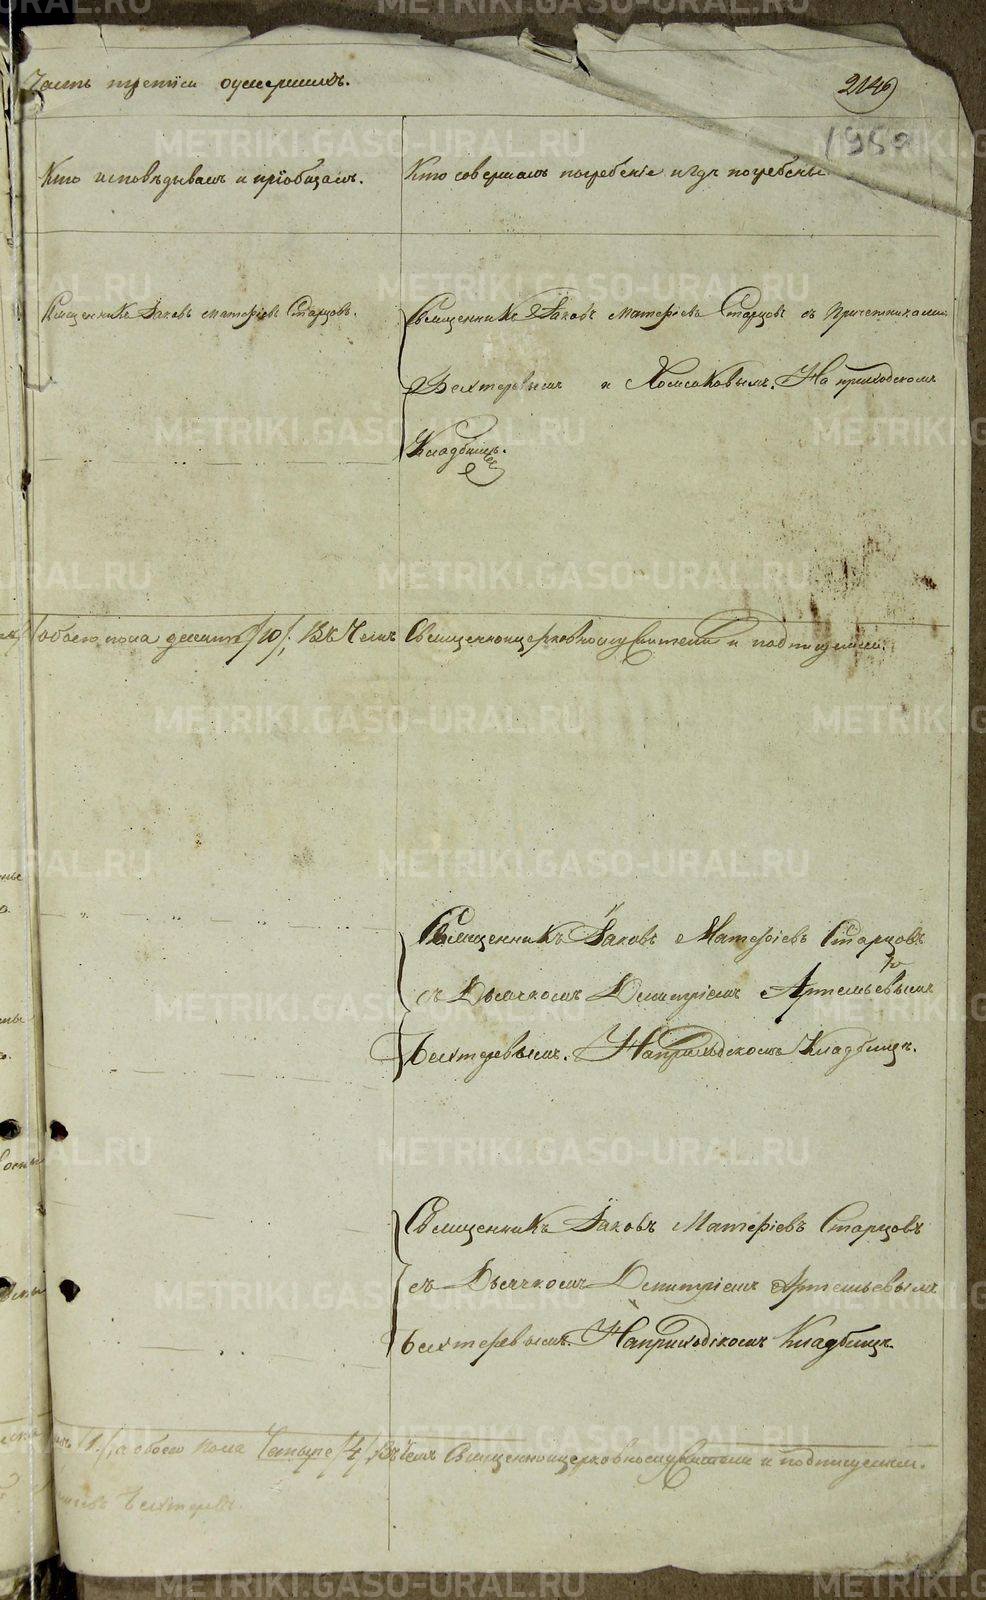 Часть третія оумершихъ.
214
195
Кто исповѣдывалъ и пріобщалъ.
Кто совершалъ погребеніе и гдѣ погребены.
Священникъ Іаковъ Матѳіевъ Старцовъ.
Священникъ Іаковъ Матѳіевъ Старцовъ съ Причетниками
Бехтеревымъ и Хомяковымъ. На приходскомъ
Кладбищѣ.
обоего пола десять /10/; Въ чемъ Священноцерковнослужители и подписуемся.
Священникъ Іаковъ Матѳіевъ Старцовъ
съ Дьячкомъ Димитріемъ Артемьевымъ
Бехтеревымъ. На приходскомъ Кладбищѣ.
Священникъ Іаковъ Матѳіевъ Старцовъ
съ Дьячкомъ Димитріемъ Артемьевымъ
Бехтеревымъ. На приходскомъ Кладбищѣ.
/1./, а обоего пола Четыре /4/, Въ чемъ Священноцерковнослужители и подписуемся.
Бехтеревъ.
METRIKI.GASO-URAL.RU